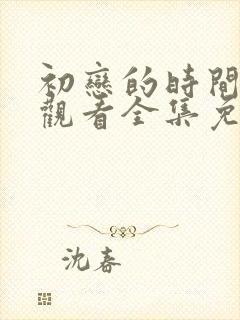 初戀的時間
觀看全集免
沈春